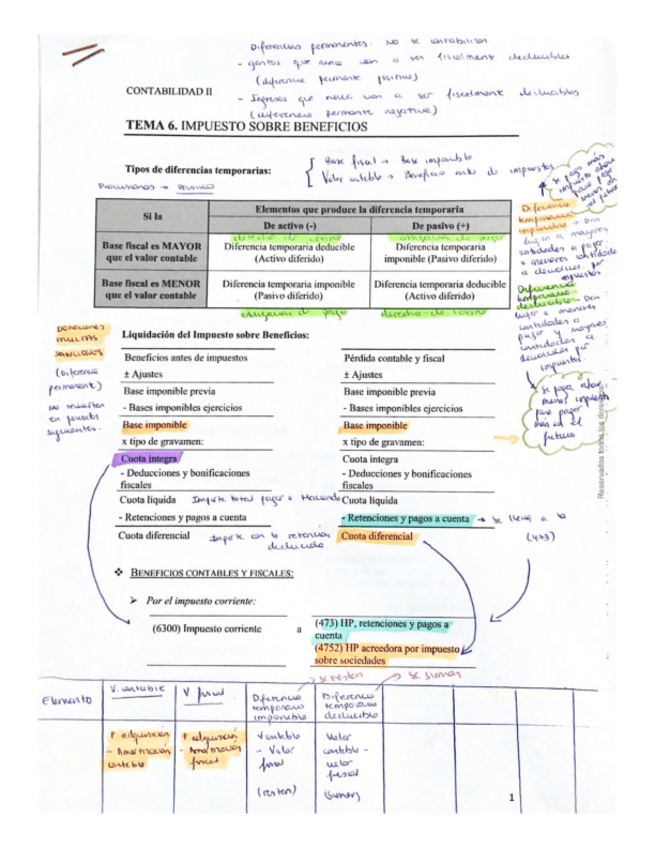 Diferencias permanentes. No se contabilizan
- gastos que nunca van a ser fiscalmente deducibles
(diferencia permanente positiva)
CONTABILIDAD II
- Ingresos que nunca van a ser fiscalmente deducibles
(diferencia permanente negativa)
TEMA 6. IMPUESTO SOBRE BENEFICIOS
Tipos de diferencias temporarias:
Base fiscal → Base imponible
Valor contable → Beneficio antes de impuestos
Provisiones → Pasivo
se paga más impuesto ahora para pagar menos en el futuro
Si la
Elementos que produce la diferencia temporaria
De activo (-)
De pasivo (+)
derecho de cobro
obligación de pago
Base fiscal es MAYOR
que el valor contable
Diferencia temporaria deducible
(Activo diferido)
Diferencia temporaria
imponible (Pasivo diferido)
Base fiscal es MENOR
que el valor contable
Diferencia temporaria imponible
(Pasivo diferido)
Diferencia temporaria deducible
(Activo diferido)
obligación de pago
derecho de cobro
Diferencia
temporaria
imponible → Dan
lugar a mayores
cantidades a pagar
o menores cantidades
a devolver por
impuestos
Diferencia
temporaria
deducible → Dan
lugar a menores
cantidades a
pagar y mayores
cantidades a
devolver por
impuestos.
se paga ahora
menos impuesto
para pagar
más en el
futuro
DONACIONES
MULTAS
SANCIONES
(Diferencia
permanente)
no revierten
en periodos
siguientes.
Liquidación del Impuesto sobre Beneficios:
Beneficios antes de impuestos
± Ajustes
Base imponible previa
- Bases imponibles ejercicios
Base imponible
x tipo de gravamen:
Cuota integra
- Deducciones y bonificaciones
fiscales
Cuota líquida Importe total pagar a Hacienda
- Retenciones y pagos a cuenta
Cuota diferencial Importe con la retención
deducida.
Pérdida contable y fiscal
± Ajustes
Base imponible previa
- Bases imponibles ejercicios
Base imponible
x tipo de gravamen:
Cuota integra
- Deducciones y bonificaciones
fiscales
Cuota líquida
- Retenciones y pagos a cuenta → se lleva a la
(473)
Cuota diferencial
Reservados todos los derechos.
❖ BENEFICIOS CONTABLES Y FISCALES:
➢ Por el impuesto corriente:
(6300) Impuesto corriente
a
(473) HP, retenciones y pagos a
cuenta
(4752) HP acreedora por impuesto
sobre sociedades
→ se restan
→ se suman
Elemento
V. contable
V fiscal
Diferencia
temporaria
imponible
Diferencia
temporaria
deducible
P adquisición
- Amortización
contable
P adquisición
- Amortización
fiscal
V contable
- Valor
fiscal
(resten)
Valor
contable -
valor
fiscal
(sumar)
1